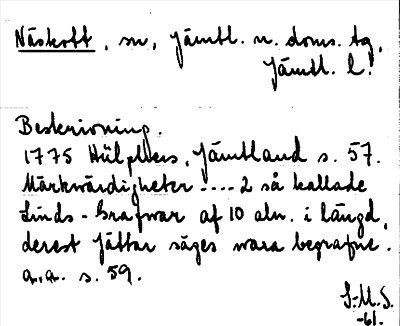 Näskott, sn, Jämtl. n. doms. tg,
Jämtl. l.
Beskrivning.
1775 Hülphers, Jämtland s. 57.
Märkwärdigheter .... 2 så kallade
Linds-Grafwar af 10 aln. i längd,
derest Jättar säges wara begrafne.
a.a. s. 59.
S.M.S.
-61.